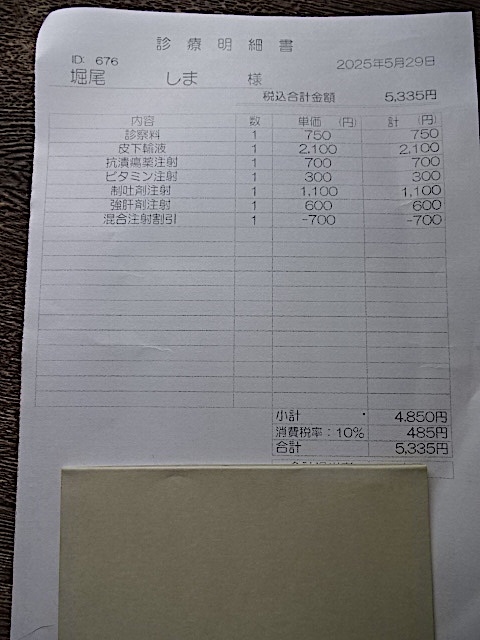 診療明細書
ID: 676
2025年5月29日
堀尾 しま 様
税込合計金額 5,335円
内容 数 単価 (円) 計 (円)
診察料 1 750 750
皮下輸液 1 2,100 2,100
抗潰瘍薬注射 1 700 700
ビタミン注射 1 300 300
制吐剤注射 1 1,100 1,100
強肝剤注射 1 600 600
混合注射割引 1 -700 -700
小計 4,850円
消費税率:10% 485円
合計 5,335円